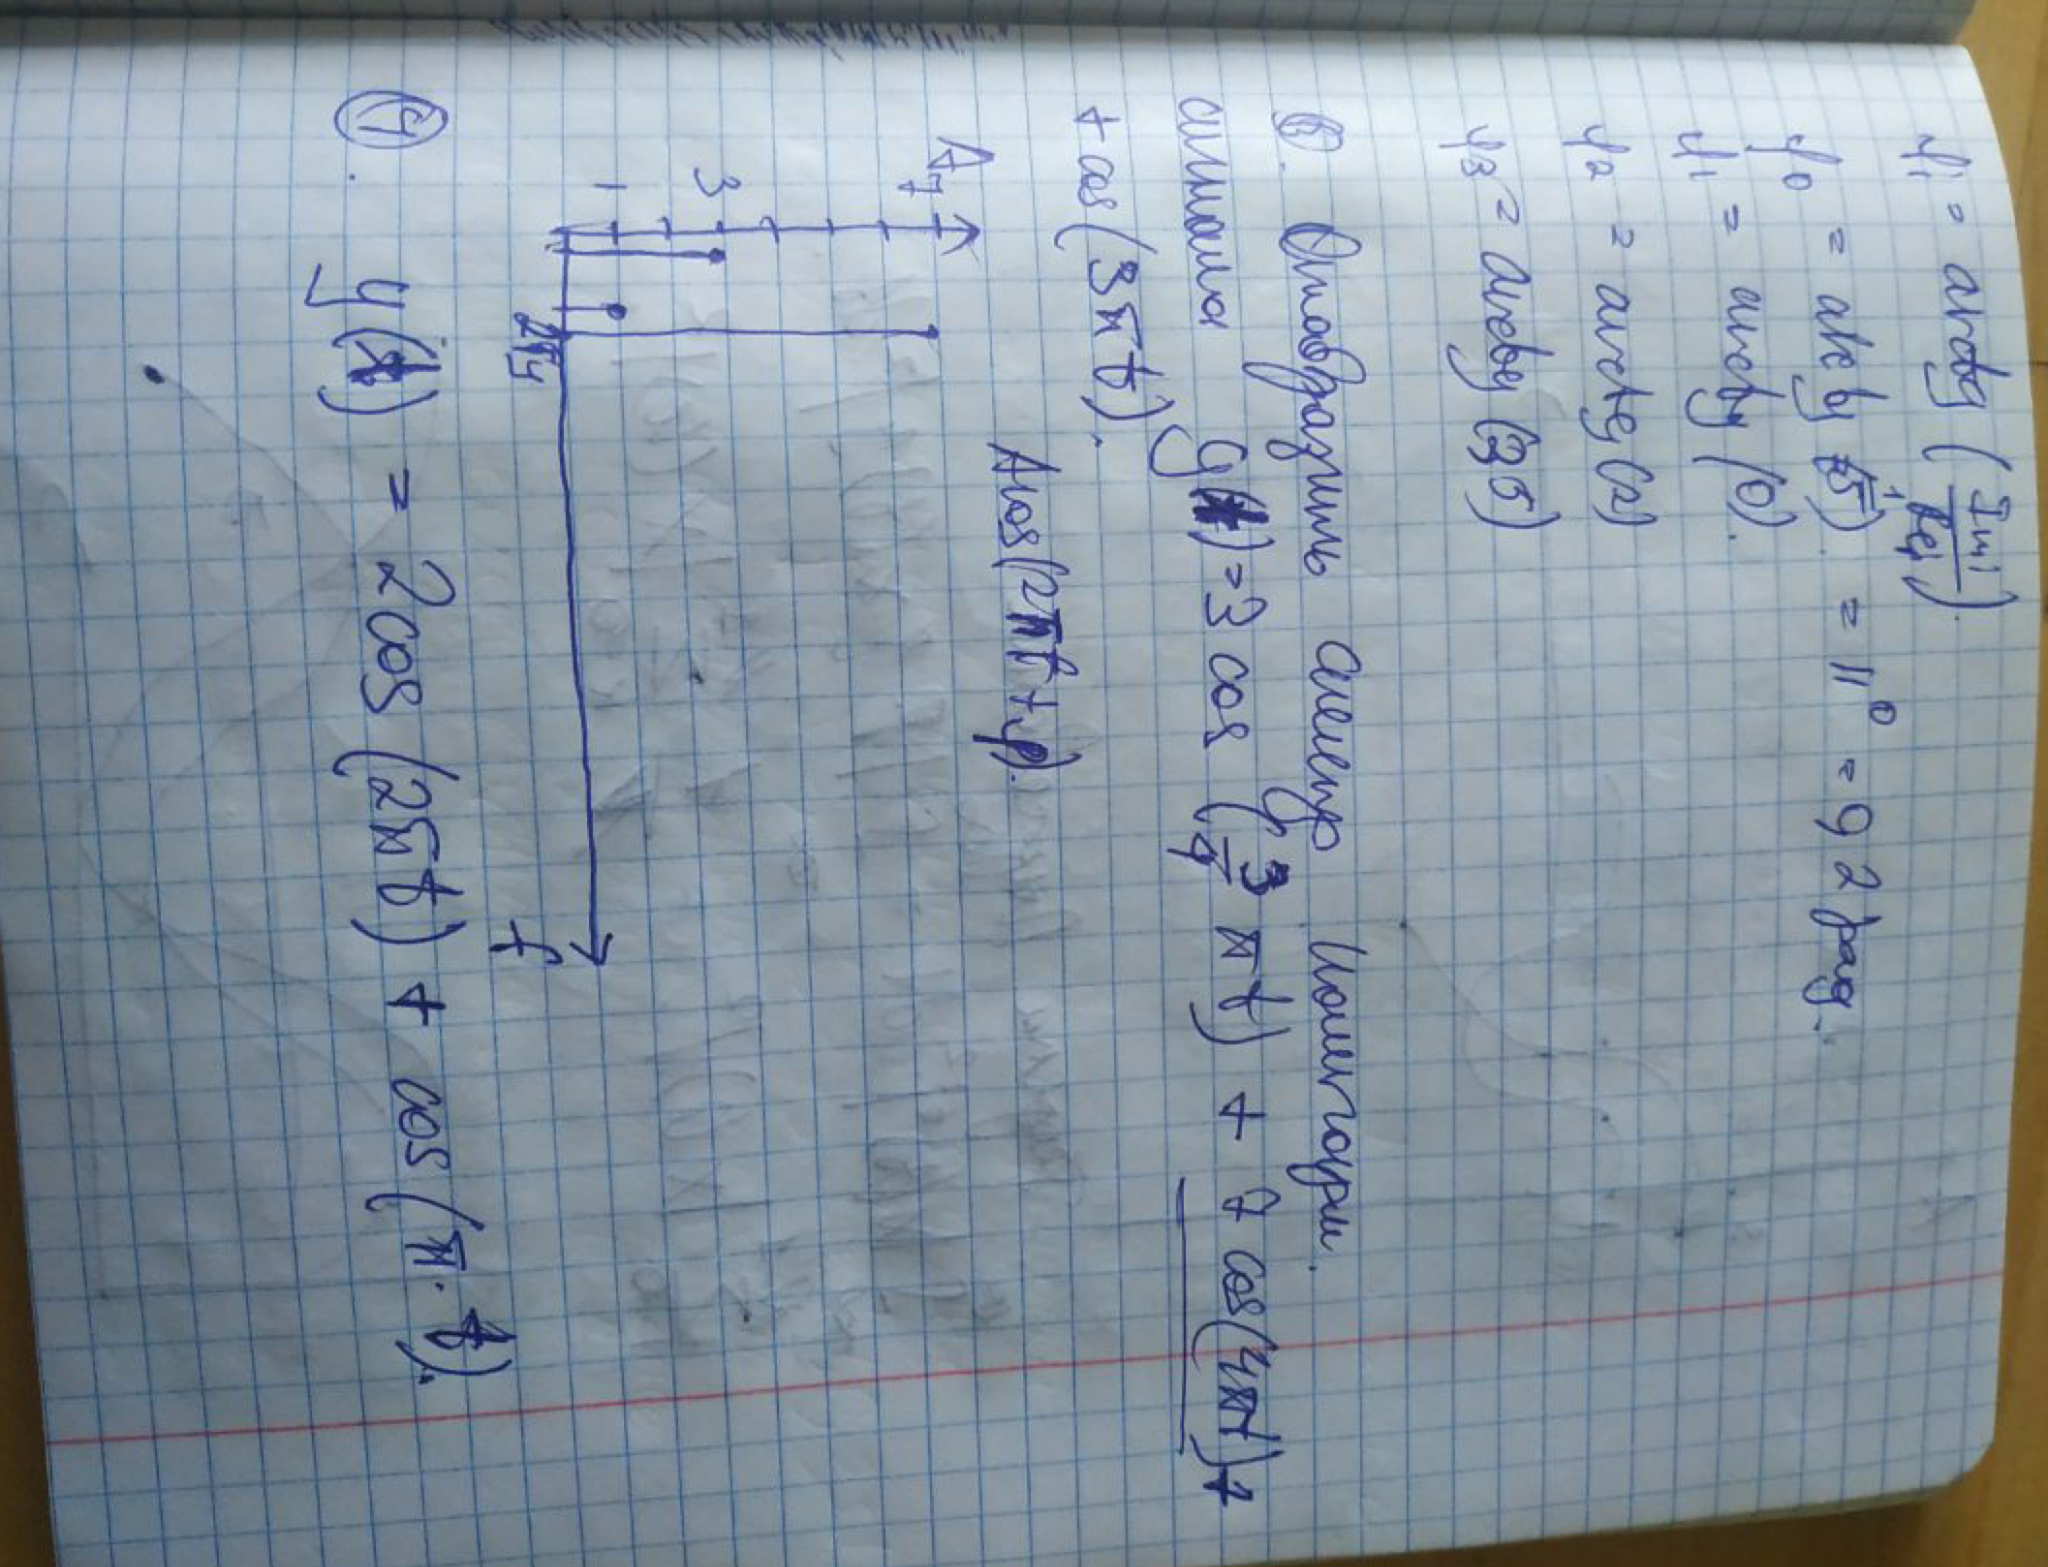 φ₁ = arctg (Im₁ / Re₁)
φ₀ = arctg (1/5) = 11° = 92 рад.
φ₁ = arctg (0).
φ₂ = arctg (2)
φ₃ = arctg (35)
Отобразить спектр
сигнала y(t) = 3 cos (3/4 πt) + 7 cos(4πt) +
+ cos(3πt).
A cos(2πft + φ).
A
7
3
1
f
④. y(t) = 2cos (2πt) + cos(π·t).